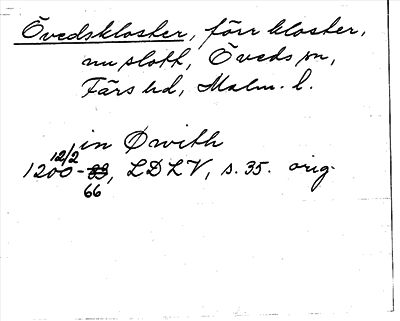 Övedskloster, förr kloster,
nu slott, Öveds sn,
Färs hd, Malm. l.
in Øwith
12/2
1200-88, LDLV, s. 35. orig.
66